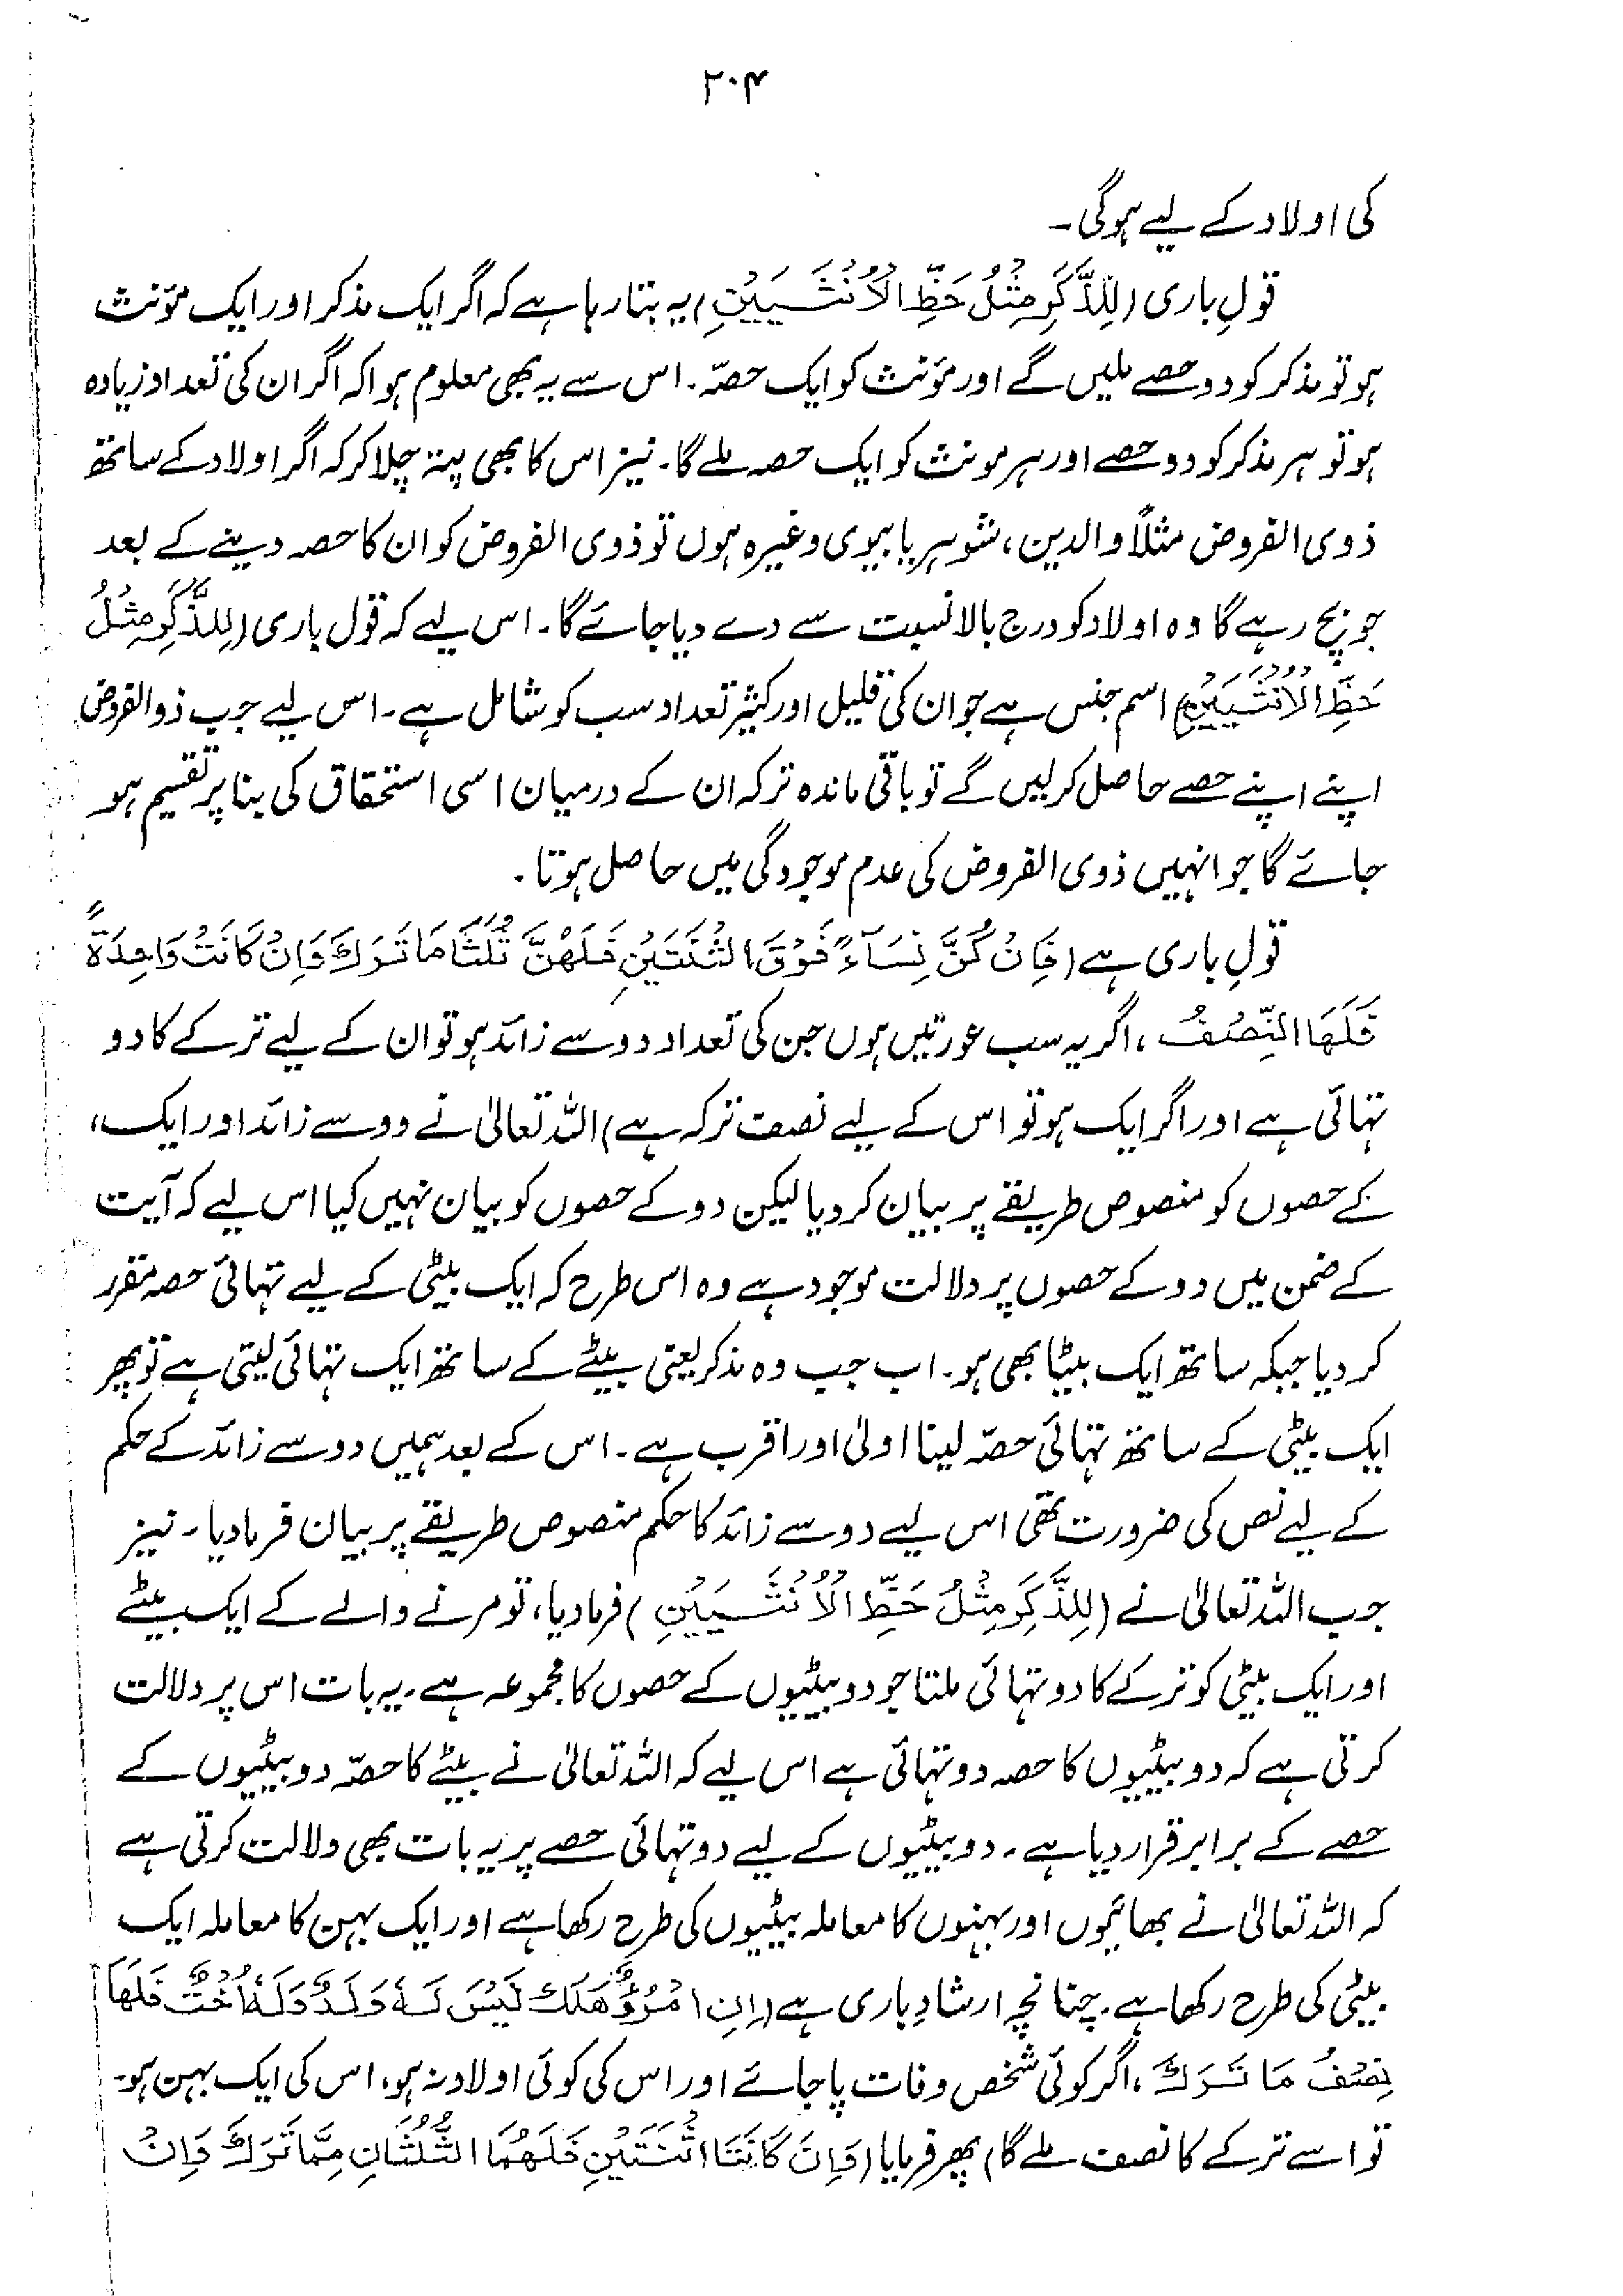 ۲۰۴
کی اولاد کے لیے ہوگی۔
قولِ باری (لِلذَّكَرِ مِثْلُ حَظِّ الْاُنْثَيَيْنِ) یہ بتا رہا ہے کہ اگر ایک مذکر اور ایک مؤنث
ہو تو مذکر کو دو حصے ملیں گے اور مؤنث کو ایک حصّہ۔ اس سے یہ بھی معلوم ہوا کہ اگر ان کی تعداد زیادہ
ہو تو ہر مذکر کو دو حصے اور ہر مونث کو ایک حصہ ملے گا۔ نیز اس کا بھی پتہ چلا کر کہ اگر اولاد کے ساتھ
ذوی الفروض مثلاً والدین، شوہر یا بیوی وغیرہ ہوں تو ذوی الفروض کو ان کا حصہ دینے کے بعد
جو بچ رہے گا وہ اولاد کو درج بالا نسبت سے دے دیا جائے گا۔ اس لیے کہ قول باری (لِلذَّكَرِ مِثْلُ
حَظِّ الْاُنْثَيَيْنِ) اسم جنس ہے جو ان کی قلیل اور کثیر تعداد سب کو شامل ہے۔ اس لیے جب ذوالفروض
اپنے اپنے حصے حاصل کر لیں گے تو باقی ماندہ ترکہ ان کے درمیان اسی استحقاق کی بنا پر تقسیم ہو
جائے گا جو انہیں ذوی الفروض کی عدم موجودگی میں حاصل ہوتا۔
قولِ باری ہے (فَاِنْ كُنَّ نِسَآءً فَوْقَ اثْنَتَيْنِ فَلَهُنَّ ثُلُثَا مَا تَرَكَ وَاِنْ كَانَتْ وَاحِدَةً
فَلَهَا النِّصْفُ، اگر یہ سب عورتیں ہوں جن کی تعداد دو سے زائد ہو تو ان کے لیے ترکے کا دو
تہائی ہے اور اگر ایک ہو تو اس کے لیے نصف ترکہ ہے) اللہ تعالیٰ نے دو سے زائد اور ایک،
کے حصوں کو منصوص طریقے پر بیان کر دیا لیکن دو کے حصوں کو بیان نہیں کیا اس لیے کہ آیت
کے ضمن میں دو کے حصوں پر دلالت موجود ہے وہ اس طرح کہ ایک بیٹی کے لیے تہائی حصہ مقرر
کر دیا جبکہ ساتھ ایک بیٹا بھی ہو۔ اب جب وہ مذکر یعنی بیٹے کے ساتھ ایک تہائی لیتی ہے تو پھر
ایک بیٹی کے ساتھ تہائی حصّہ لینا اولیٰ اور اقرب ہے۔ اس کے بعد ہمیں دو سے زائد کے حکم
کے لیے نص کی ضرورت تھی اس لیے دو سے زائد کا حکم منصوص طریقے پر بیان فرما دیا۔ نیز
جب اللہ تعالیٰ نے (لِلذَّكَرِ مِثْلُ حَظِّ الْاُنْثَيَيْنِ) فرما دیا، تو مرنے والے کے ایک بیٹے
اور ایک بیٹی کو ترکے کا دو تہائی ملتا جو دو بیٹیوں کے حصوں کا مجموعہ ہے۔ یہ بات اس پر دلالت
کرتی ہے کہ دو بیٹیوں کا حصہ دو تہائی ہے اس لیے کہ اللہ تعالیٰ نے بیٹے کا حصّہ دو بیٹیوں کے
حصے کے برابر قرار دیا ہے۔ دو بیٹیوں کے لیے دو تہائی حصے پر یہ بات بھی دلالت کرتی ہے
کہ اللہ تعالیٰ نے بھائیوں اور بہنوں کا معاملہ بیٹیوں کی طرح رکھا ہے اور ایک بہن کا معاملہ ایک
بیٹی کی طرح رکھا ہے۔ چنانچہ ارشادِ باری ہے (اِنِ امْرُؤٌ هَلَكَ لَيْسَ لَهٗ وَلَدٌ وَّلَهٗ اُخْتٌ فَلَهَا
نِصْفُ مَا تَرَكَ، اگر کوئی شخص وفات پا جائے اور اس کی کوئی اولاد نہ ہو، اس کی ایک بہن ہو۔
تو اسے ترکے کا نصف ملے گا) پھر فرمایا (فَاِنْ كَانَتَا اثْنَتَيْنِ فَلَهُمَا الثُّلُثَانِ مِمَّا تَرَكَ وَاِنْ